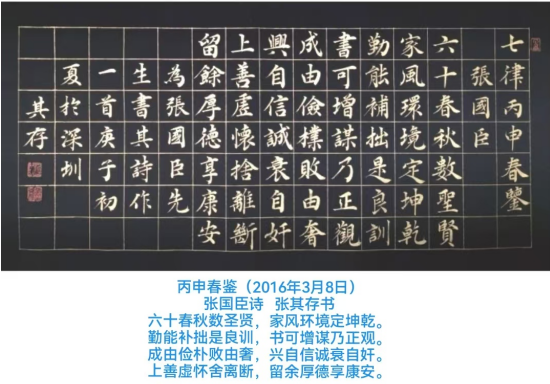 七律丙申春鑒
張國臣
六十春秋數聖賢
家風環境定坤乾
勤能補拙是良訓
書可增謀乃正觀
成由儉樸敗由奢
興自信誠衰自奸
上善虛懷捨離斷
留餘厚德享康安
為張國臣先
生書其詩作
一首庚子初
夏於深圳
其存
丙申春鉴（2016年3月8日）
张国臣诗 张其存书
六十春秋数圣贤，家风环境定坤乾。
勤能补拙是良训，书可增谋乃正观。
成由俭朴败由奢，兴自信诚衰自奸。
上善虚怀舍离断，留余厚德享康安。